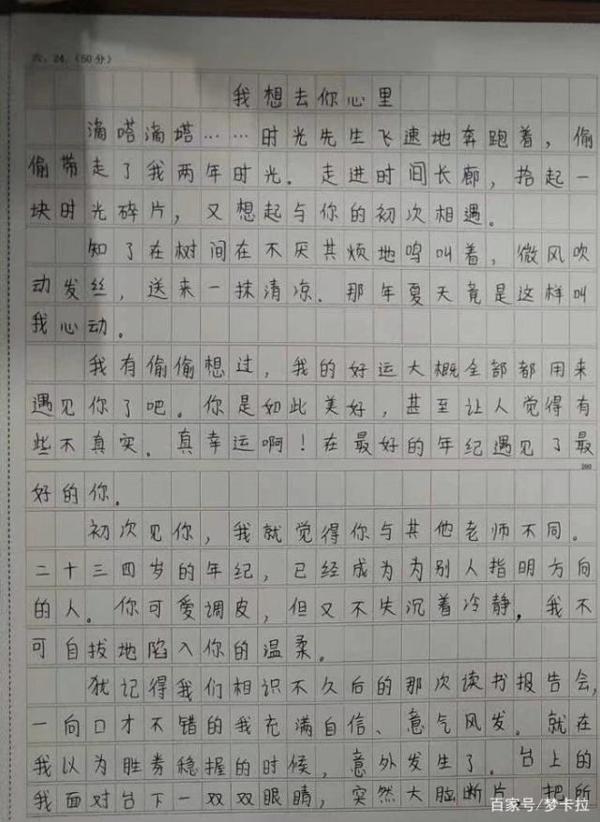 六、24.(50分)
我想去你心里
滴嗒滴嗒……时光先生飞速地奔跑着，偷
偷带走了我两年时光。走进时间长廊，拾起一
块时光碎片，又想起与你的初次相遇。
知了在树间在不厌其烦地鸣叫着，微风吹
动发丝，送来一抹清凉．那年夏天竟是这样叫
我心动．
我有偷偷想过，我的好运大概全部都用来
遇见你了吧。你是如此美好，甚至让人觉得有
些不真实．真幸运啊！在最好的年纪遇见了最
200
好的你．
初次见你，我就觉得你与其他老师不同。
二十三四岁的年纪，已经成为为别人指明方向
的人。你可爱调皮，但又不失沉着冷静，我不
可自拔地陷入你的温柔。
犹记得我们相识不久后的那次读书报告会，
一向口才不错的我充满自信、意气风发。就在
我以为胜券稳握的时候，意外发生了．台上的
我面对台下一双双眼睛，突然大脑断片，把所
百家号/梦卡拉